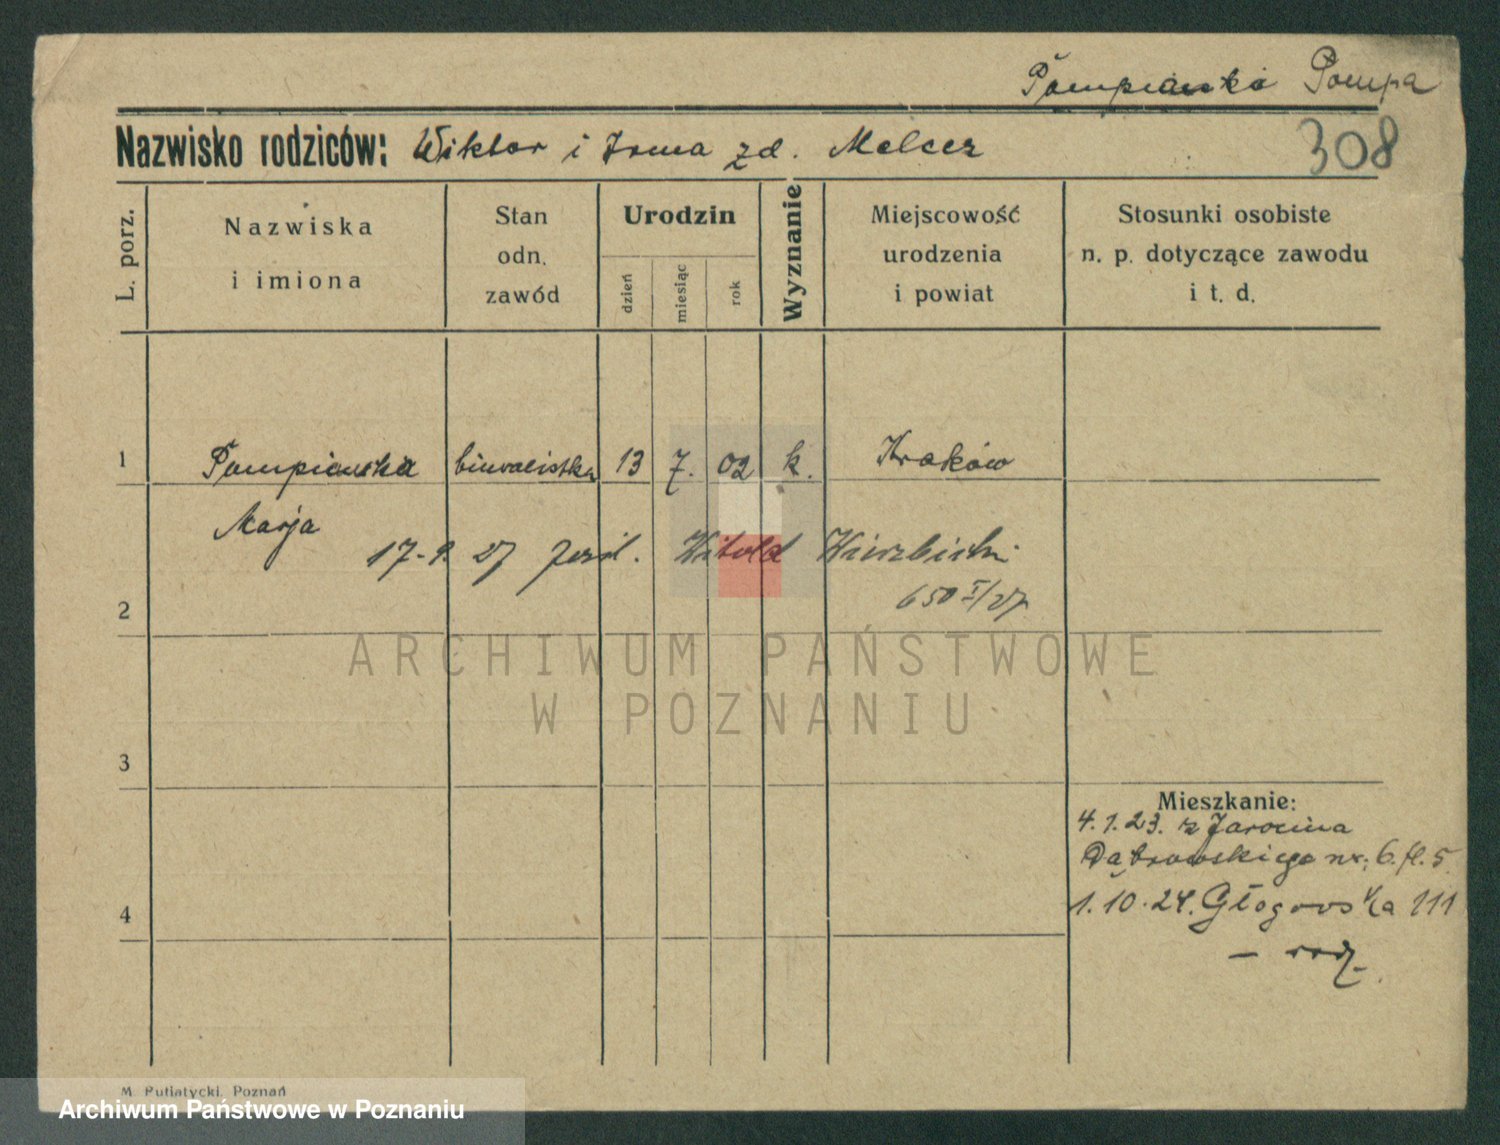 Pompianska Pompa
Nazwisko rodziców: Wiktor i Irma zd. Melcer
308
L. porz.
Nazwiska
i imiona
Stan
odn.
zawód
Urodzin
dzień
miesiąc
rok
Wyznanie
Miejscowość
urodzenia
i powiat
Stosunki osobiste
n. p. dotyczące zawodu
i t. d.
1 Pompianska biuralistka 13 7. 02 k. Kraków
Marja
17-9. 27 Witold Wierzbicki
2 650 I/27
3
Mieszkanie:
4.1.23. z Jarocina
Dąbrowskiego nr. 6. 5
4 1.10.24. Głogowska 111
– rodz.
ARCHIWUM PAŃSTWOWE
W POZNANIU
M. Putiatycki, Poznań
Archiwum Państwowe w Poznaniu